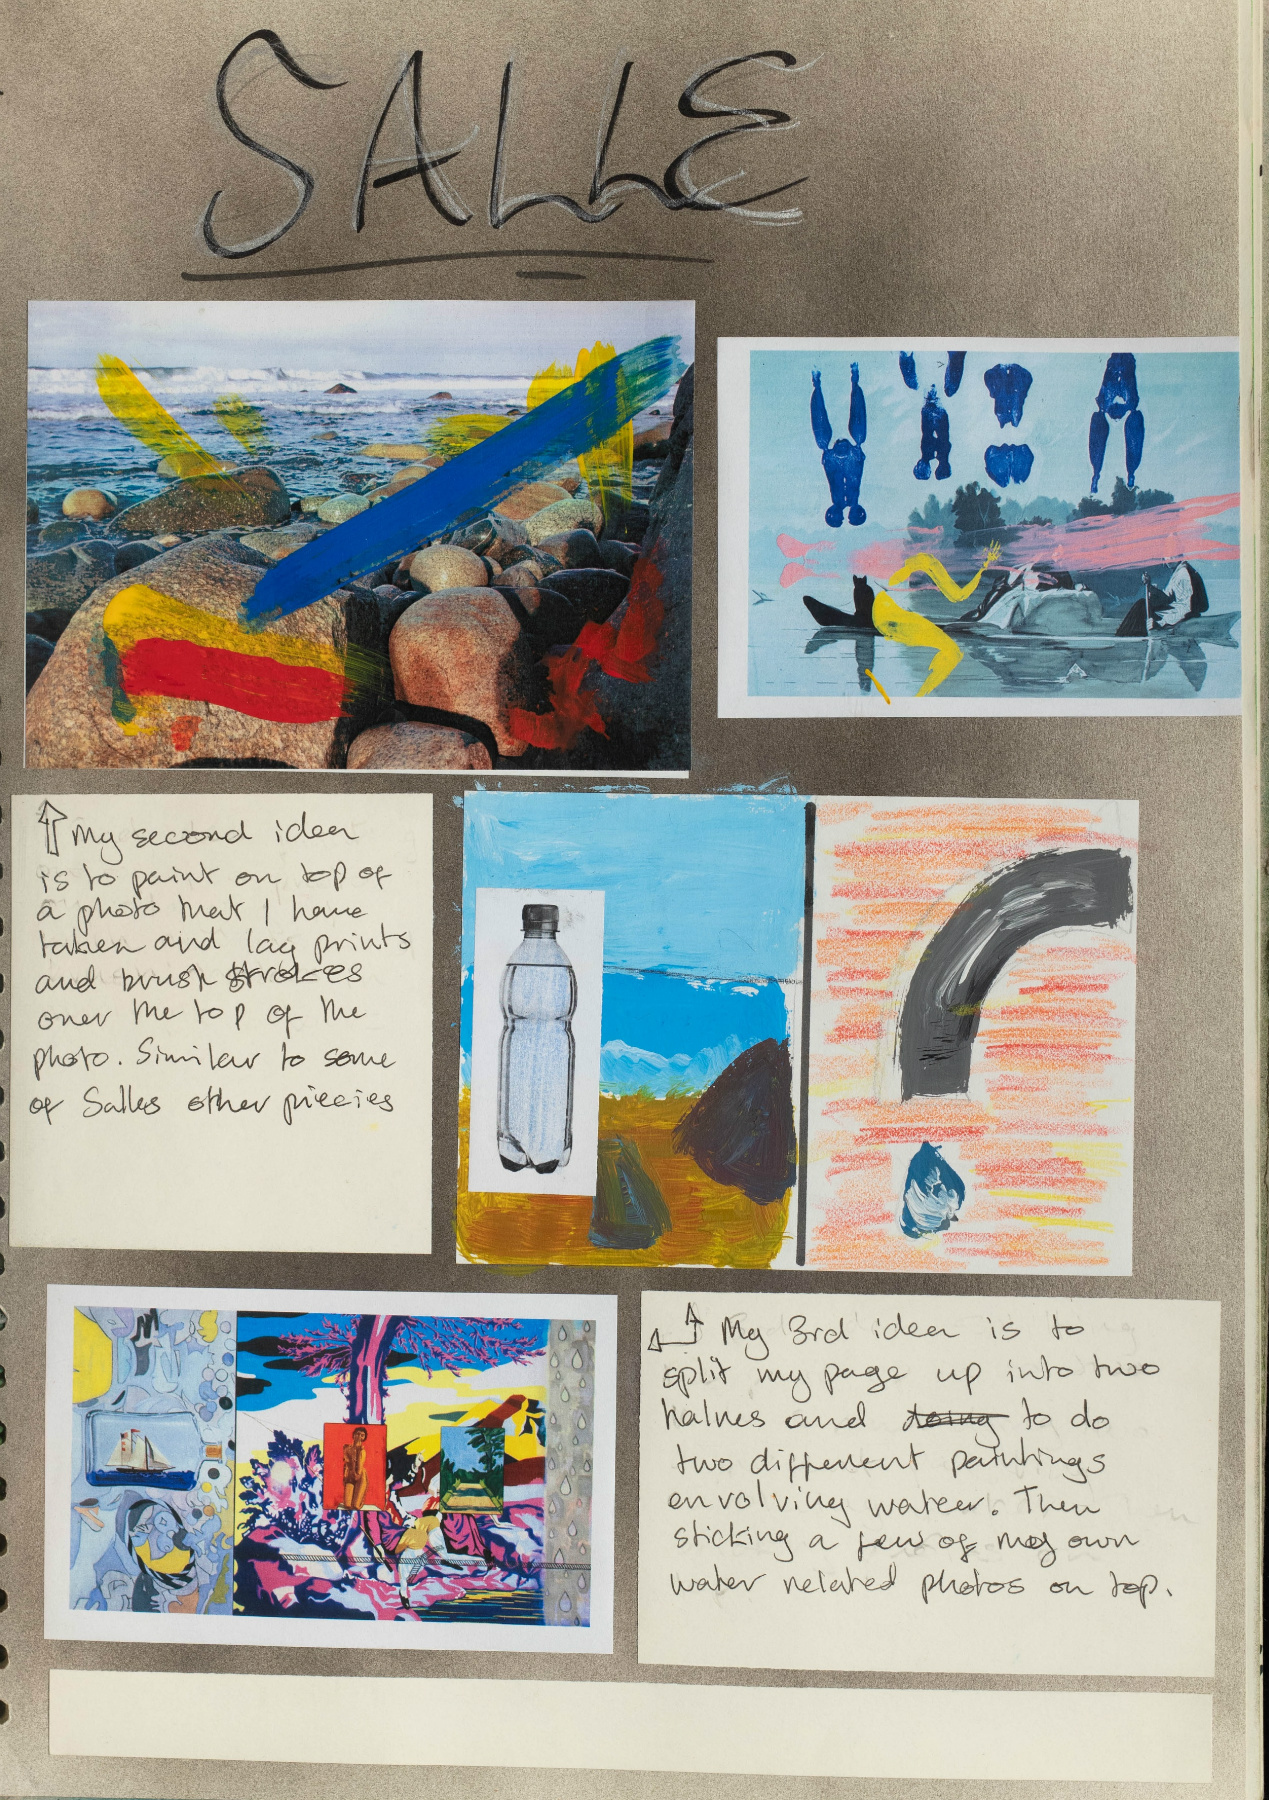 SALLE
My second idea
is to paint on top of
a photo that I have
taken and lay prints
and brush strokes
over the top of the
photo. Similar to some
of Salles other piecies
My 3rd idea is to
split my page up into two
halves and doing to do
two different paintings
envolving water. Then
sticking a few of my own
water related photos on top.